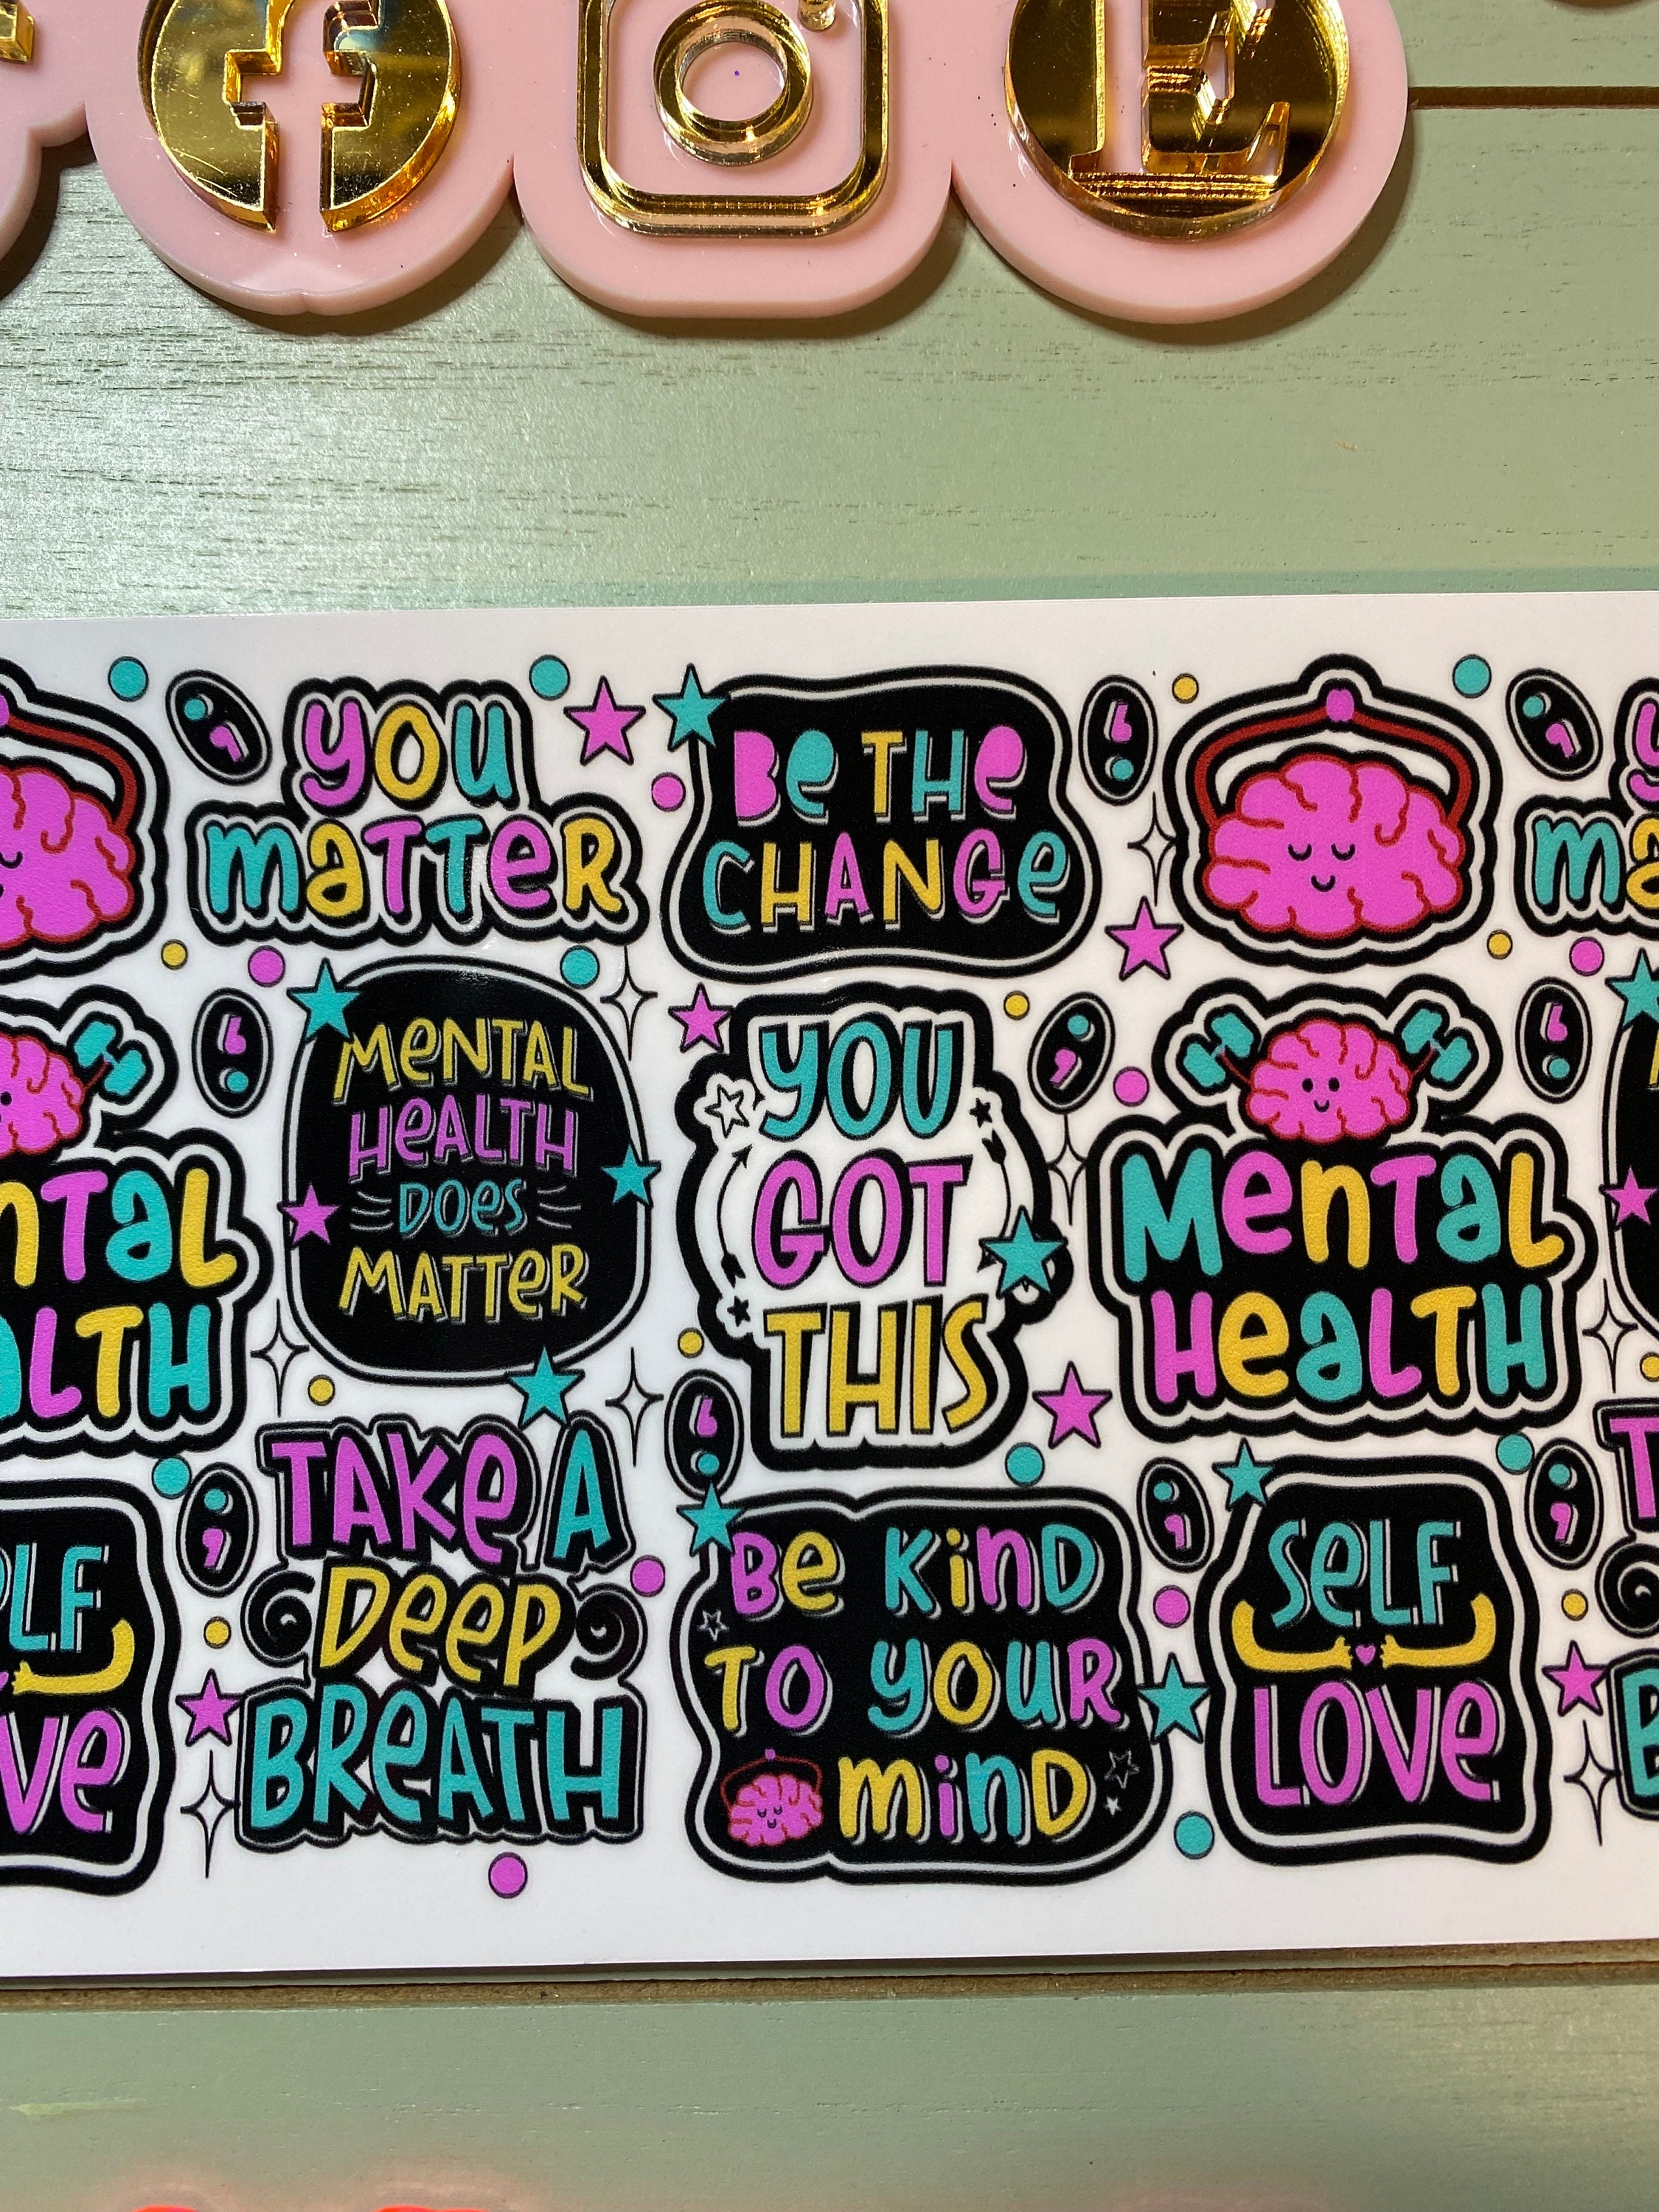 f
E
YOU
MATTER
BE THE
CHANGE
MENTAL
HEALTH
DOES
MATTER
YOU
GOT
THIS
MENTAL
HEALTH
TAKE A
DEEP
BREATH
BE KIND
TO YOUR
MIND
SELF
LOVE